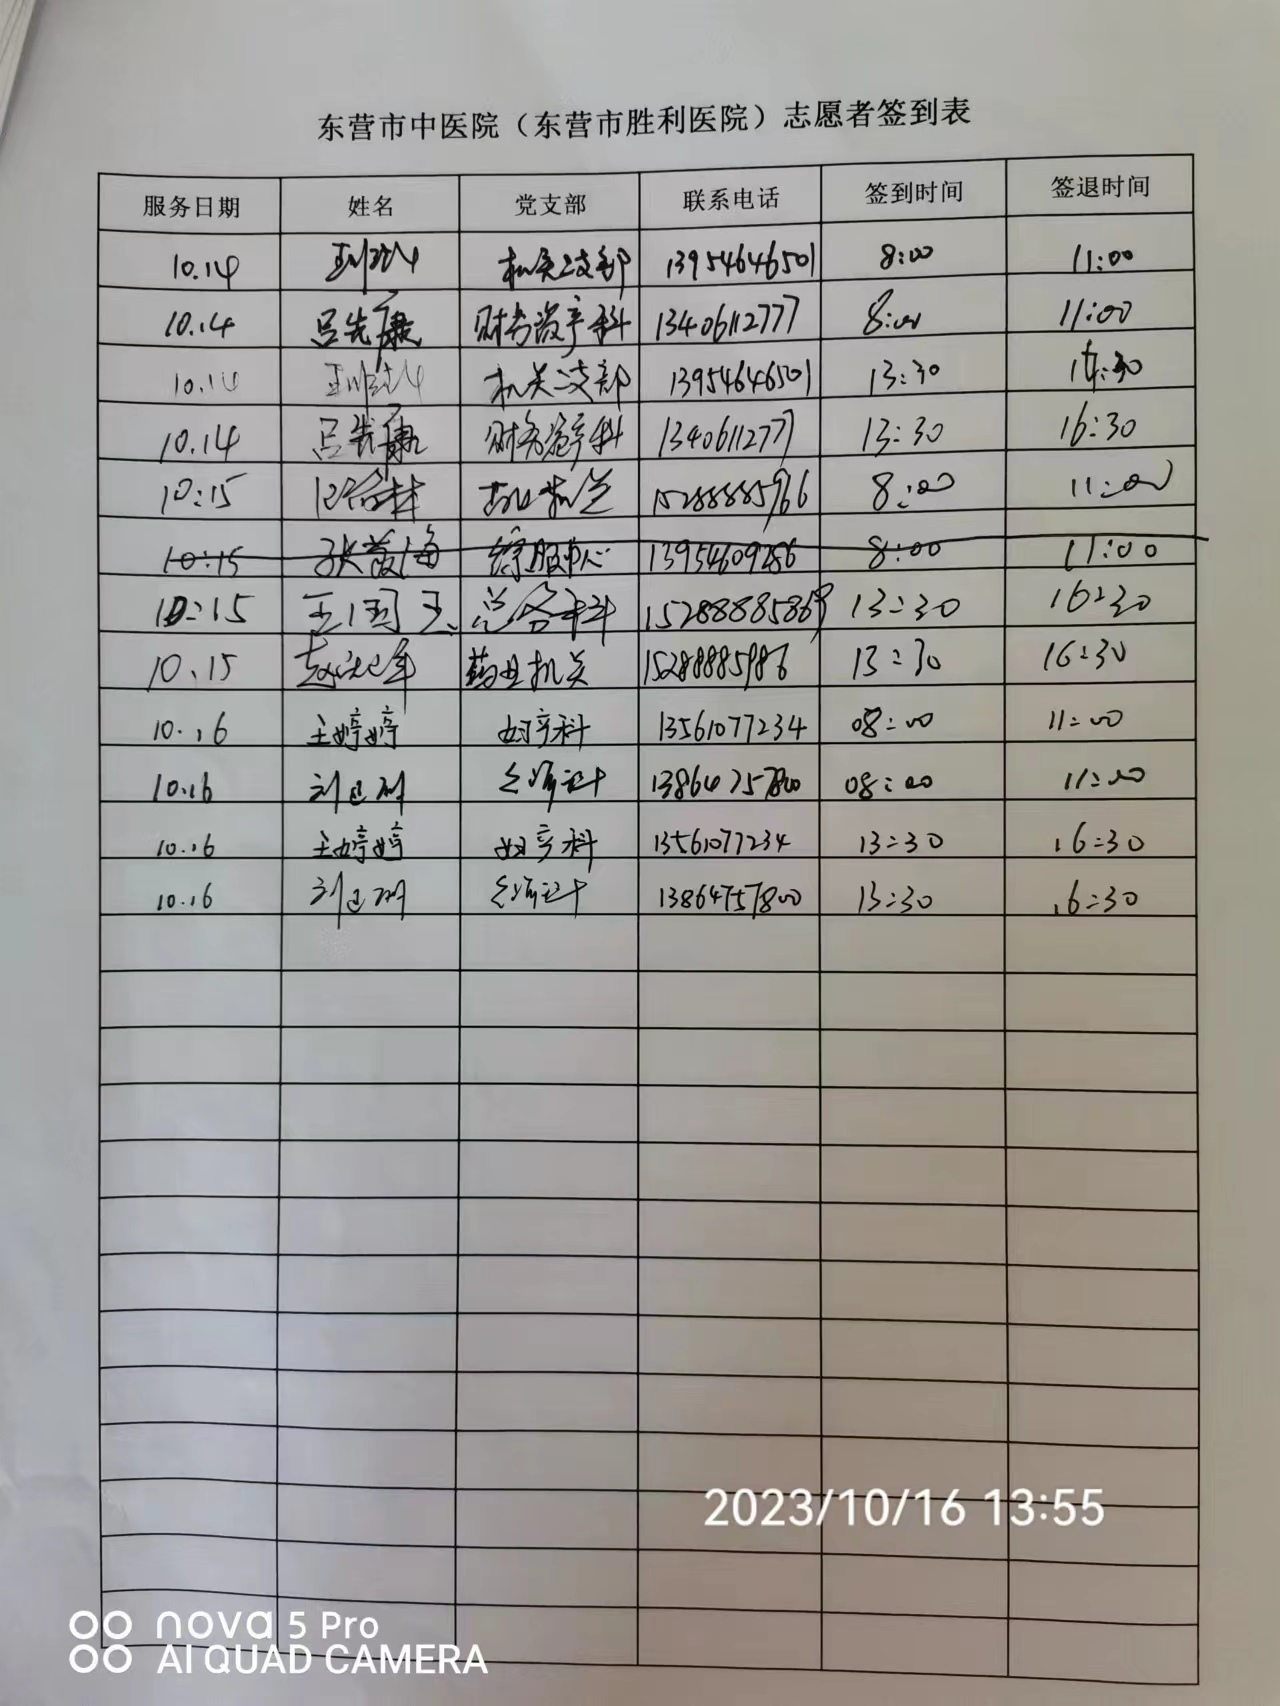 东营市中医院（东营市胜利医院）志愿者签到表
服务日期 姓名 党支部 联系电话 签到时间 签退时间
10.14 机关二支部 13954646501 8:00 11:00
10.14 吕先康 财务资产科 13406112777 8:00 11:00
10.14 机关二支部 13954646501 13:30 16:30
10.14 吕先康 财务资产科 13406112777 13:30 16:30
10:15 15288885966 8:00 11:00
10:15 综服中心 13954609286 8:00 11:00
10:15 王国玉 总务科 15288885869 13:30 16:30
10.15 药业机关 15288885986 13:30 16:30
10.16 王婷婷 妇产科 13561077234 08:00 11:00
10.16 13864757800 08:00 11:00
10.16 王婷婷 妇产科 13561077234 13:30 16:30
10.16 13864757800 13:30 16:30
2023/10/16 13:55
nova 5 Pro
AI QUAD CAMERA